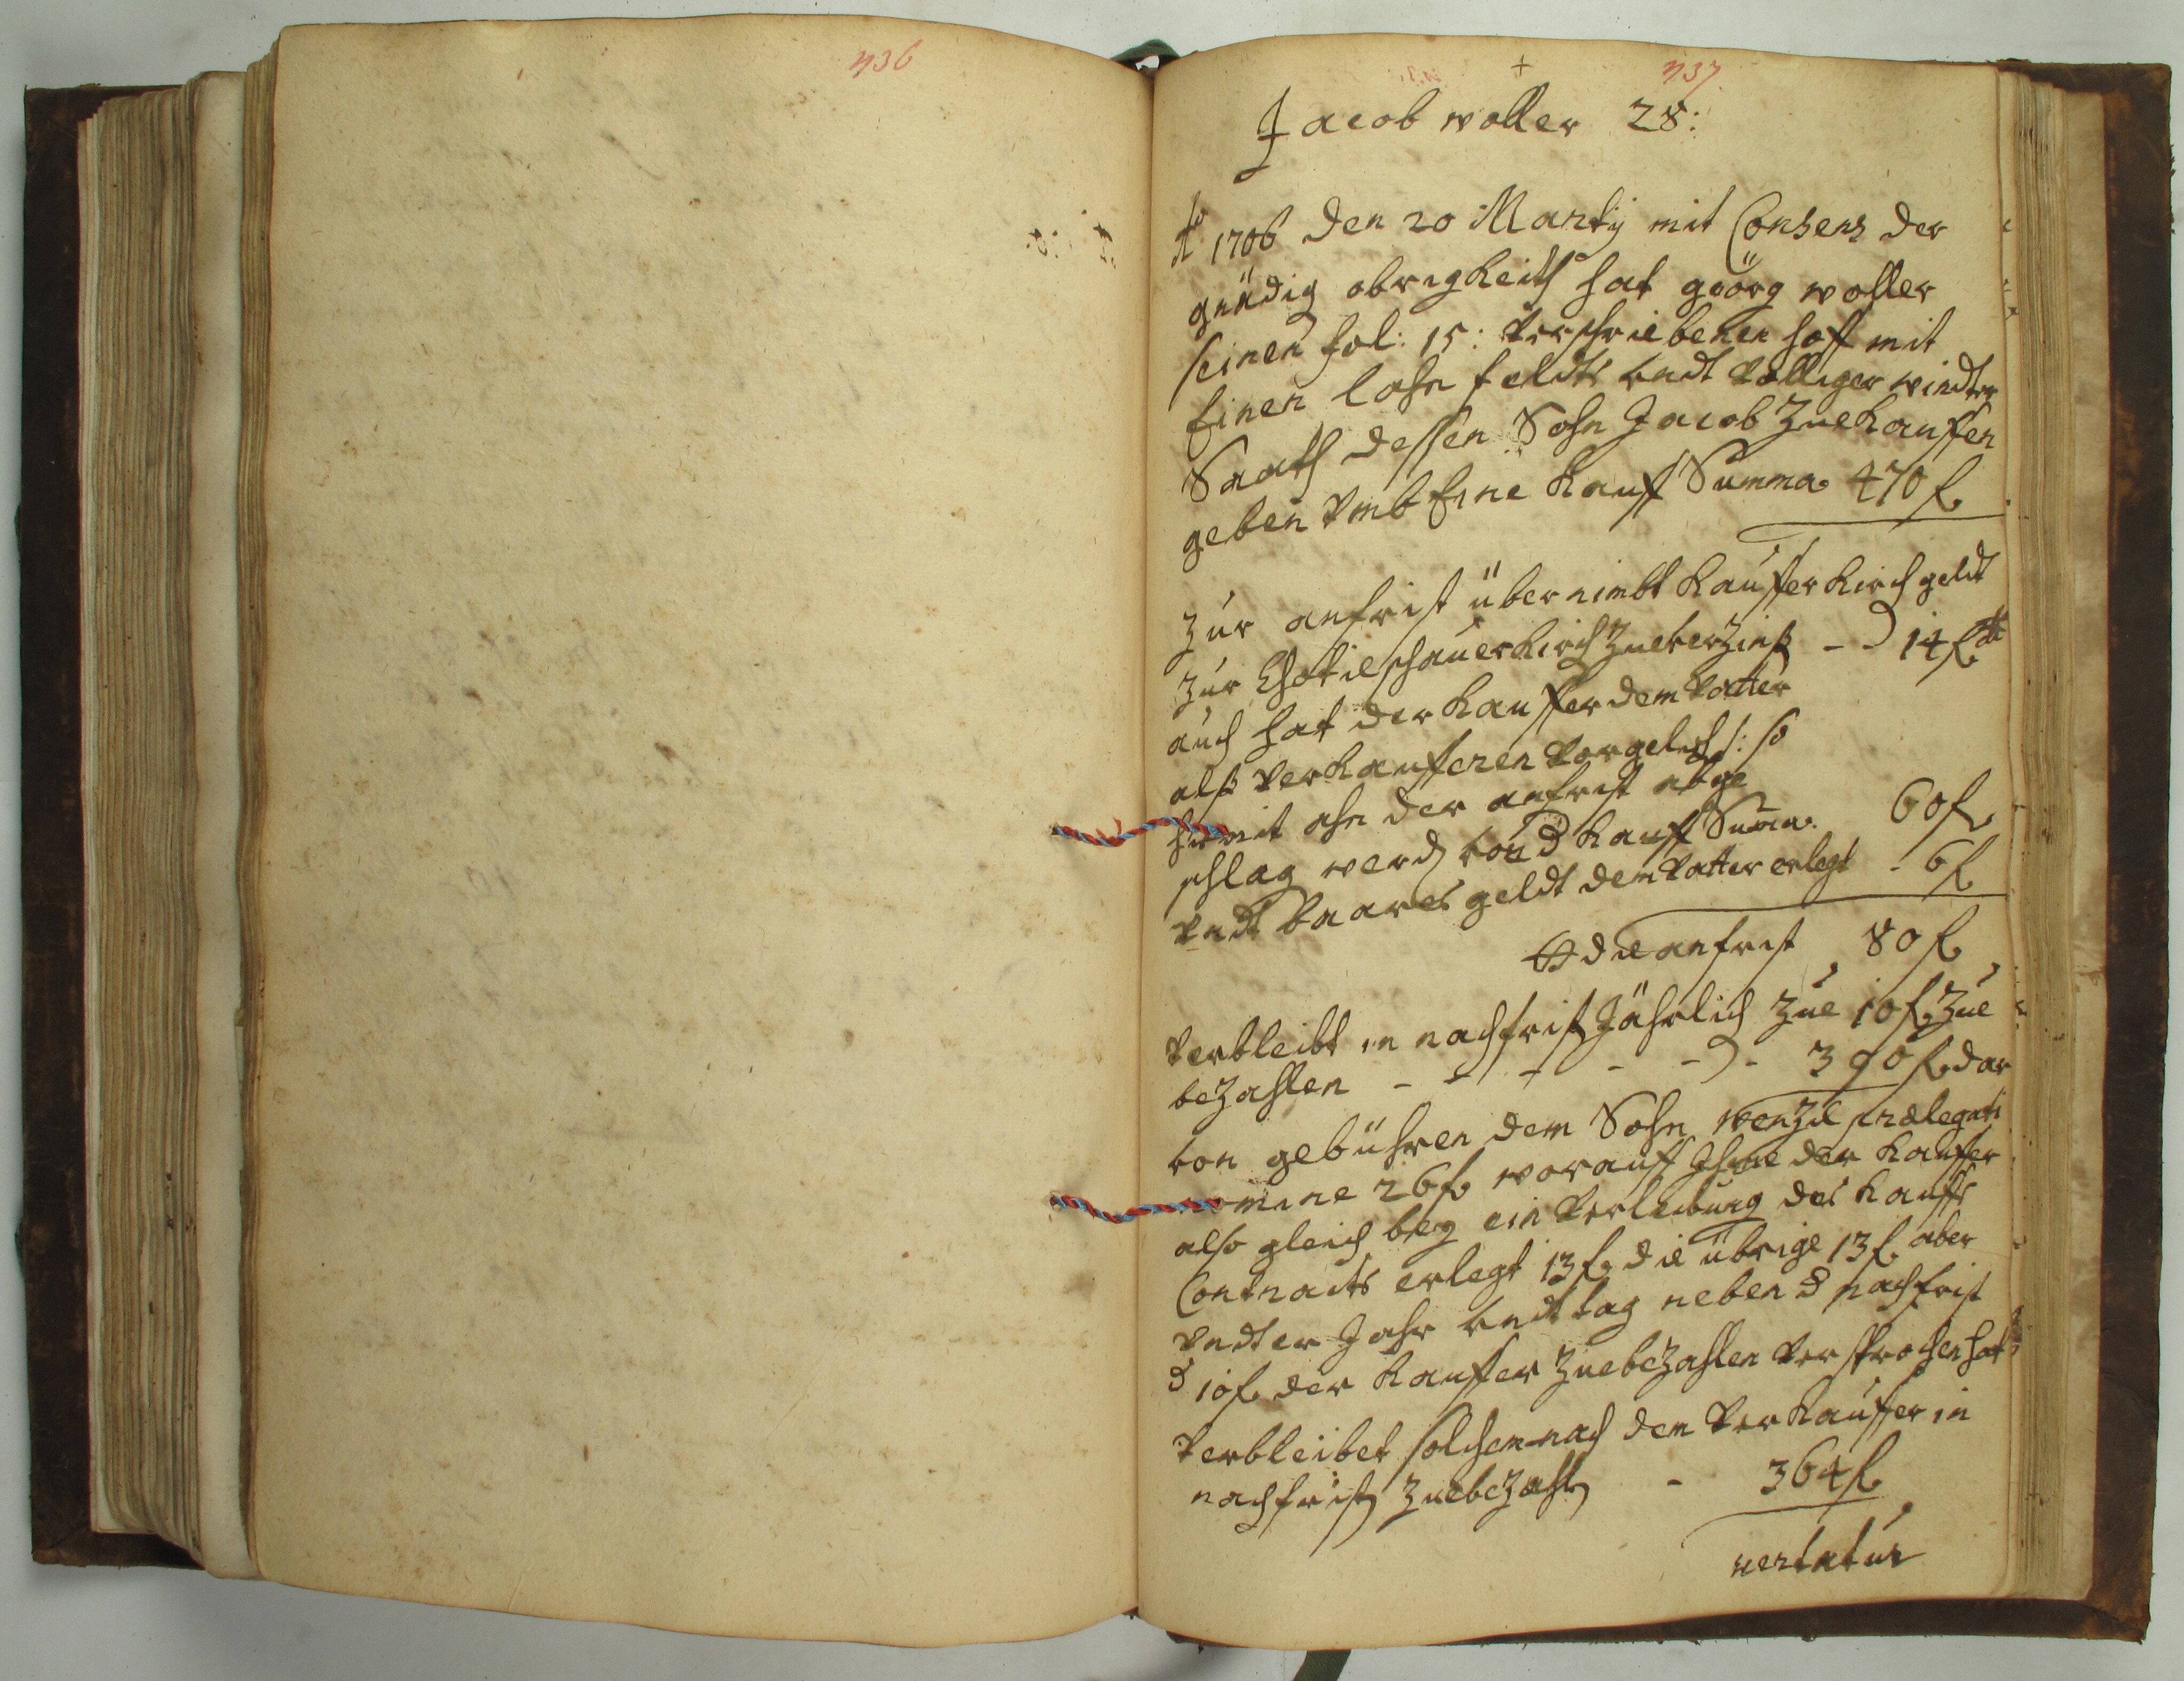 436
437
Jacob woller 28:
Ao 1706 den 20 Martij mit Consens der
gnädig obrigkeith hat geörg woller
seinen fol: 15: verschriebenen hoff mit
Einen lahn feldts undt völliger windter
Saath dessen Sohn Jacob Zuekauffen
geben vmb Eine kauff Summa 470 f.
Zur anfrist übernimbt kauffer kirch geldt
Zur Chotieschauer kirch Zueverzinß - 14 f.
auch hat der kauffer dem vatter
alß verkaufferen vorgelich /: so
hiemit ahn der anfrist abge
schlag werd von d kauff Suma. 60 f.
vndt baares geldt dem vatter erlegt - 6 f.
die anfrist 80 f.
verbleibt in nachfrist Jährlich Zue 10 f. Zue
beZahlen - - - - - 390 f. dar
von gebühren dem Sohn wenzl prælegati
nomine 26 f. worauff Ihme der kauffer
also gleich bey ein verleibung des kauffs
Contracts erlegt 13 f. die übrige 13 f. aber
vndter Jahr undt tag neben d nachfrist
d 10 f. der kauffer ZuebeZahlen versprochen hat
verbleibet solchemnach dem verkauffer in
nachfrist ZuebeZahl - 364 f.
vertatur